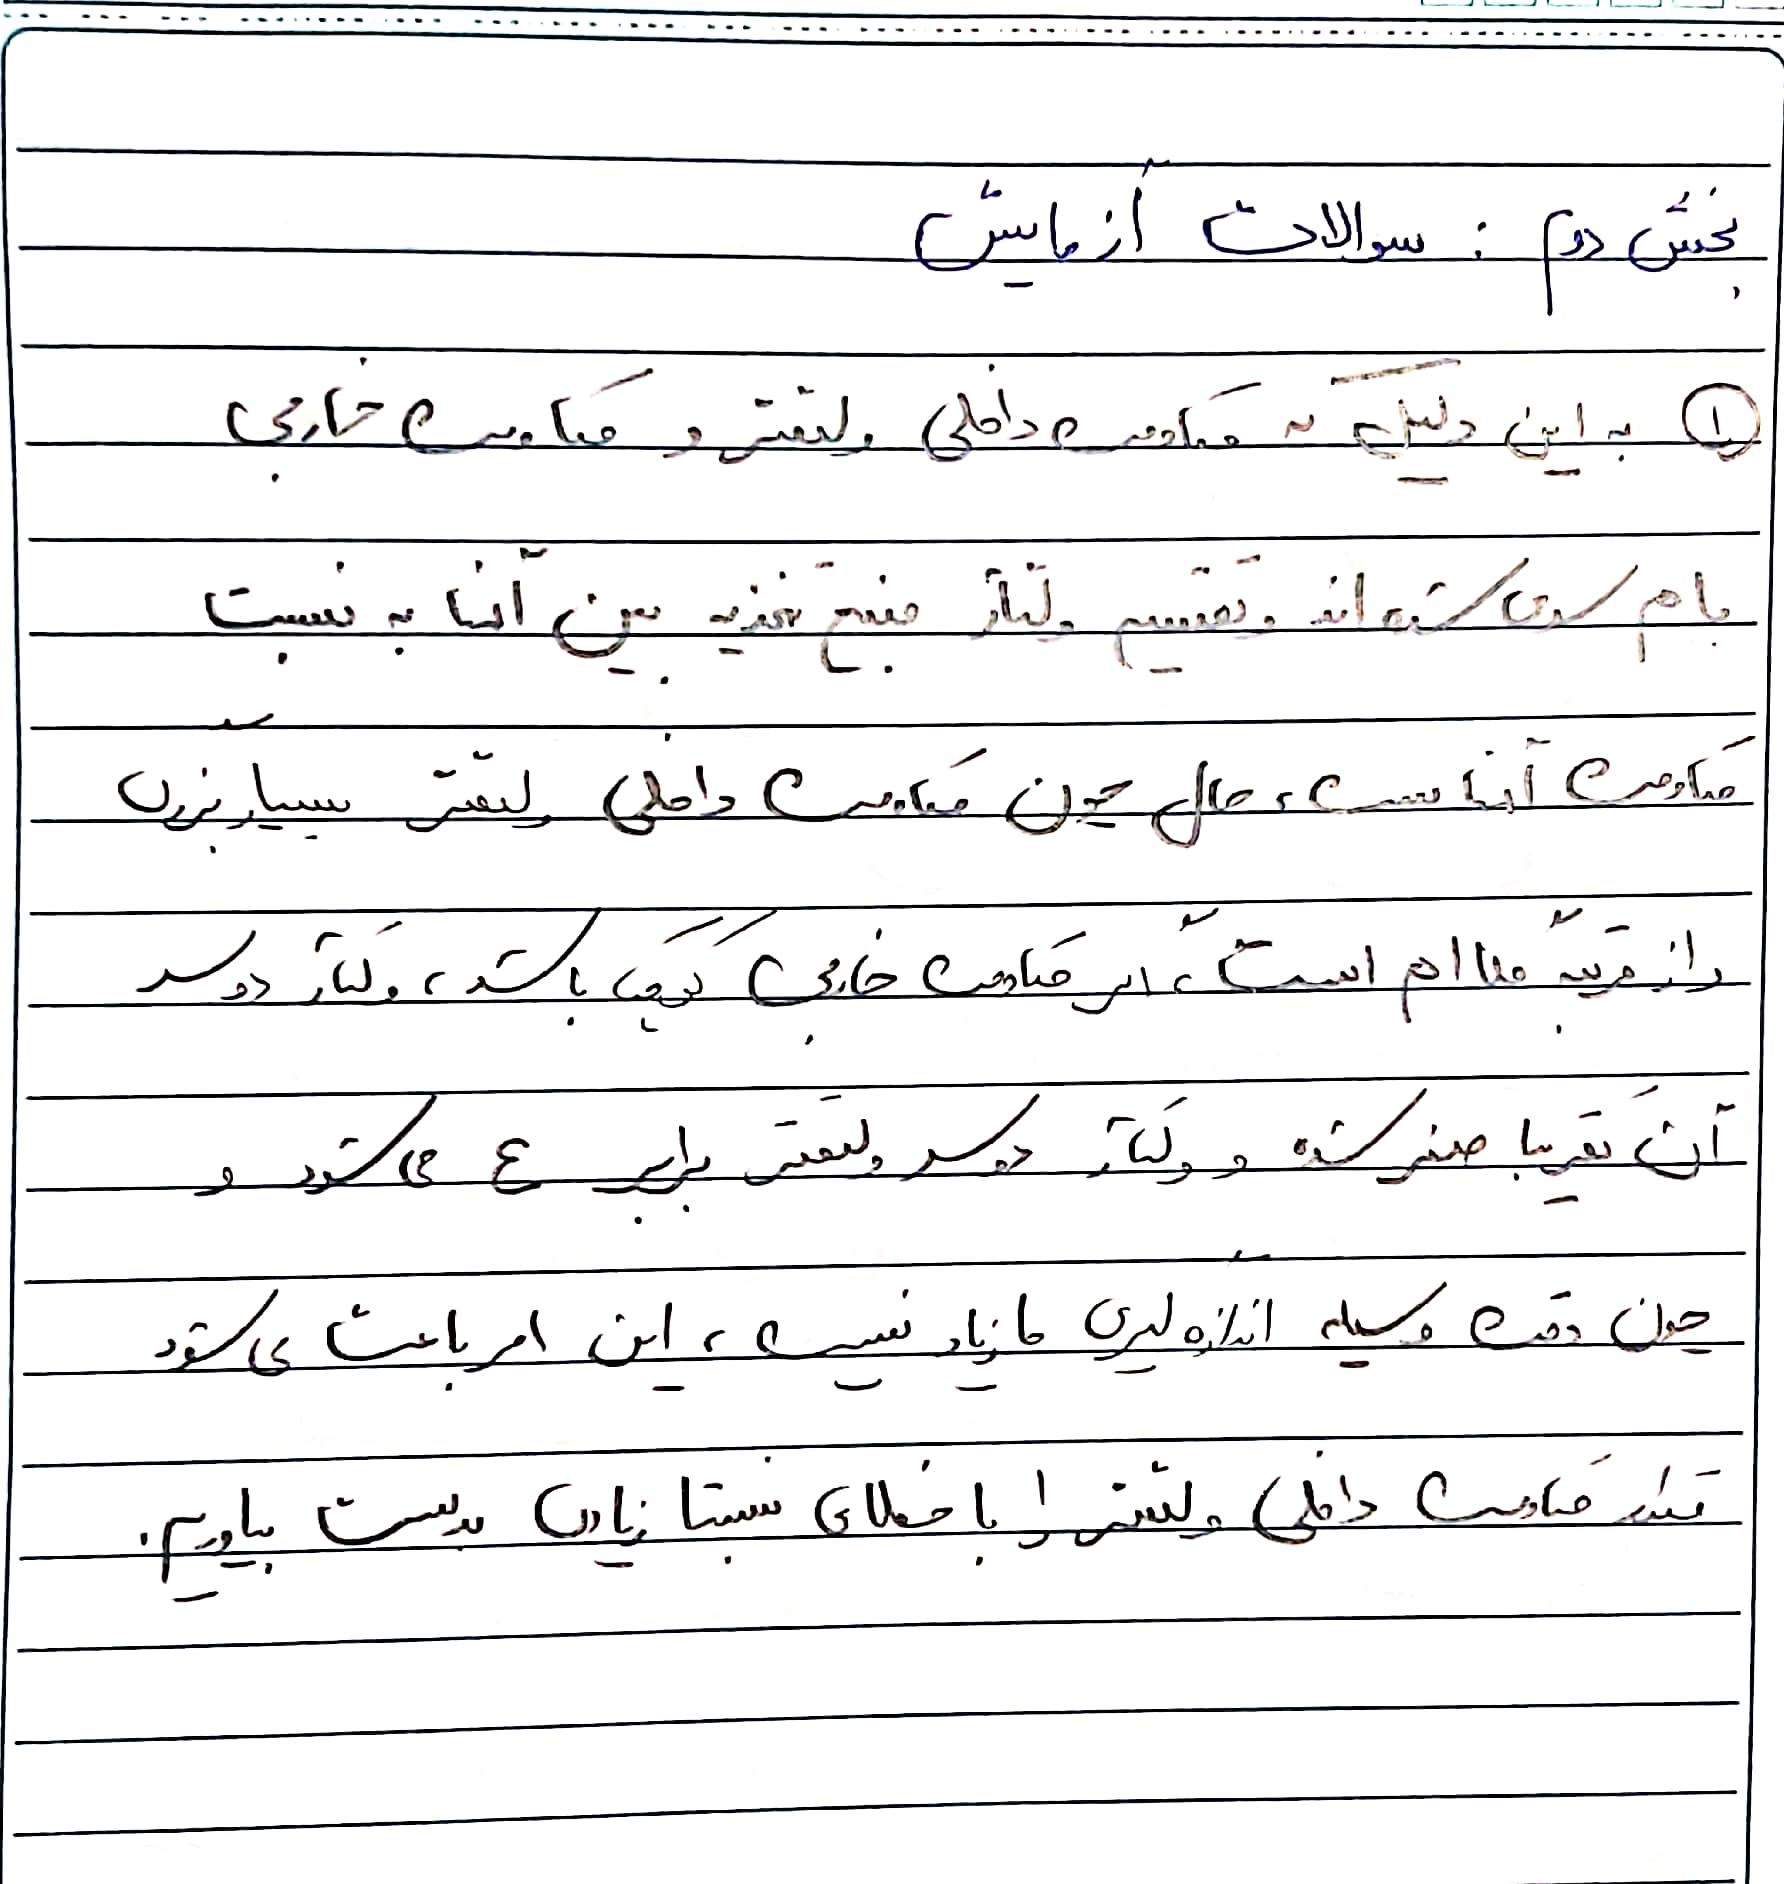 بخش دوم : سوالات آزمایش
۱ به این دلیل که مقاومت داخلی ولتمتر و مقاومت خارجی
باهم سری شده اند و تقسیم ولتاژ منبع تغذیه بین آنها به نسبت
مقاومت آنهاست، حال چون مقاومت داخلی ولتمتر بسیار بزرگ
و از مرتبه مگا اهم است، اگر مقاومت خارجی کوچک باشد، ولتاژ دو سر
آن تقریبا صفر شده و ولتاژ دو سر ولتمتر برابر ع می شود و
چون دقت وسیله اندازه گیری ما زیاد نیست، این امر باعث می شود
مقدار مقاومت داخلی ولتمتر را با خطای نسبتا زیادی بدست بیاوریم.